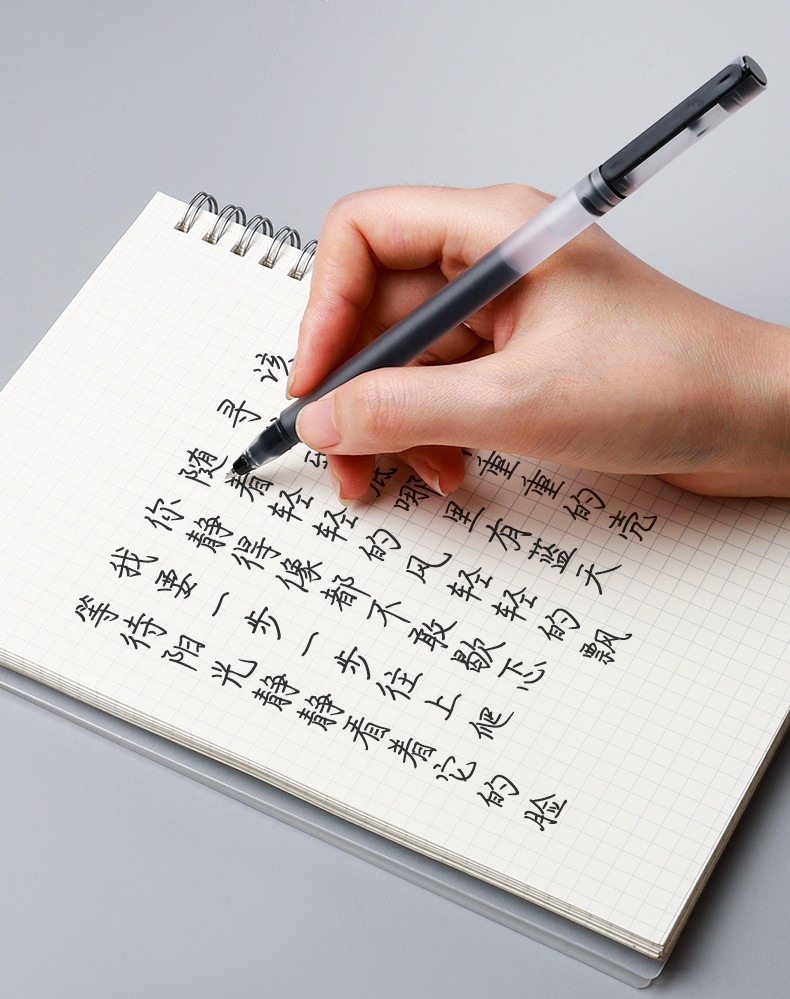 该 重重的壳
寻 底哪里有蓝天
随着轻轻的风轻轻的飘
你静得像都不敢歇忑
我要一步一步往上爬
等待阳光静静看着它的脸